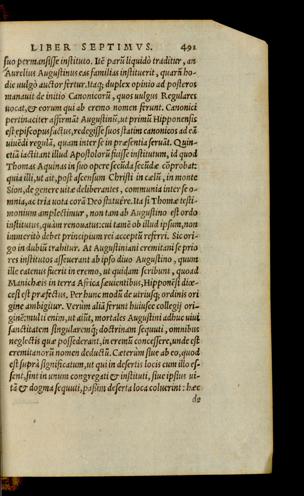 LIBER SEPTIMVS. 491
suo permansisse instituto. Ite parũ liquidò traditur, an
Aurelius Augustinus eas familias instituerit, quarũ ho-
die uulgò auctor fertur. Itaq; duplex opinio ad posteros
manauit de initio Canonicorũ, quos uulgus Regulares
uocat, & eorum qui ab eremo nomen ferunt. Canonici
pertinaciter affirmãt Augustinũ, ut primũ Hipponensis
est episcopus factus, redegisse suos statim canonicos ad eã
uiuẽdi regulã, quam inter se in præsentia seruãt. Quin-
etiã iactitant illud Apostolorũ fuisse institutum, id quod
Thomas Aquinas in suo opere secũda secũdæ cõprobat:
quia illi, ut ait, post ascensum Christi in cælũ, in monte
Sion, de genere uitæ deliberantes, communia inter se o-
mnia, ac tria uota corã Deo statuêre. Ita si Thomæ testi-
monium amplectimur, non tam ab Augustino est ordo
institutus, quàm renouatus: cui tamẽ ob illud ipsum, non
immeritò debet principium rei acceptũ referri. Sic ori-
go in dubiũ trahitur. At Augustiniani eremitani se prio
res institutos asseuerant ab ipso diuo Augustino, quum
ille catenus fuerit in eremo, ut quidam scribunt, quoad
Manichæis in terra Africa sæuientibus, Hipponẽsi diœ-
cesi est præfectus. Per hunc modũ de utriusq; ordinis ori
gine ambigitur. Verùm aliã ferunt huiusce collegij ori-
ginẽ: multi enim, ut aiũt, mortales Augustini adhuc uiui
sanctitatem singularemq; doctrinam sequuti, omnibus
neglectis quæ possederant, in eremũ concessêre, unde est
eremitanorũ nomen deductũ. Cæterùm siue ab eo, quod
est suprà significatum, ut qui in desertis locis cum illo es-
sent, sint in unum congregati & instituti, siue ipsius ui-
tã & dogma sequuti, passim deserta loca coluerint: hæc
de